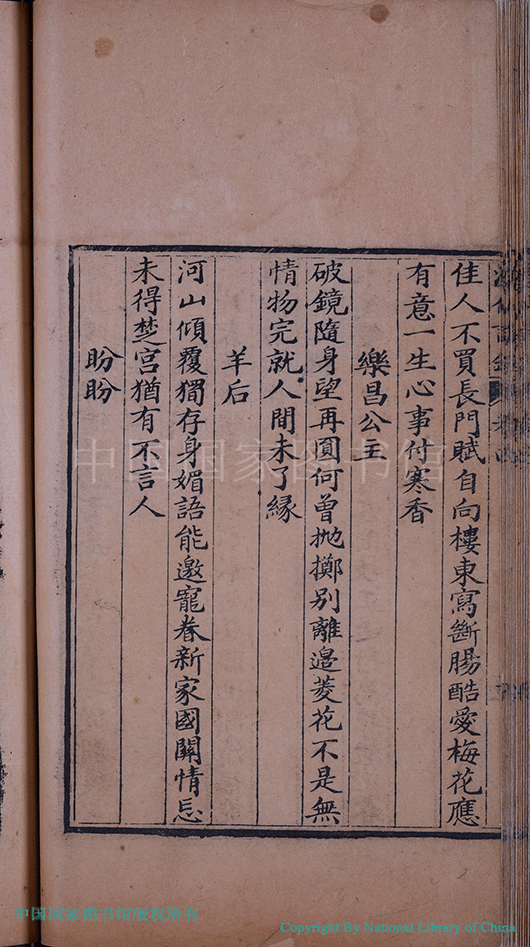 佳人不買長門賦自向樓東寫斷腸酷愛梅花應
有意一生心事付寒香
樂昌公主
破鏡隨身望再圓何曾抛擲別離邉菱花不是無
情物完就人間未了緣
羊后
河山傾覆獨存身媚語能邀寵眷新家國關情忘
未得楚宮猶有不言人
盼盼
中国国家图书馆
中国国家图书馆版权所有
Copyright By National Library of China